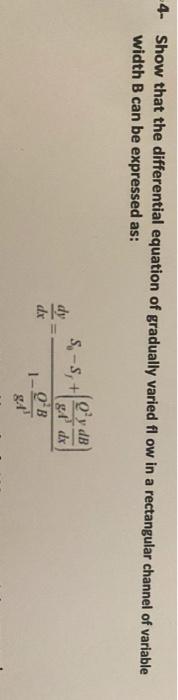 4- Show that the differential equation of gradually varied fl ow in a rectangular channel of variable
width B can be expressed as:
dy/dx = (S₀ − S_f + (Q² y/gA³ dB/dx)) / (1 − Q² B/gA³)